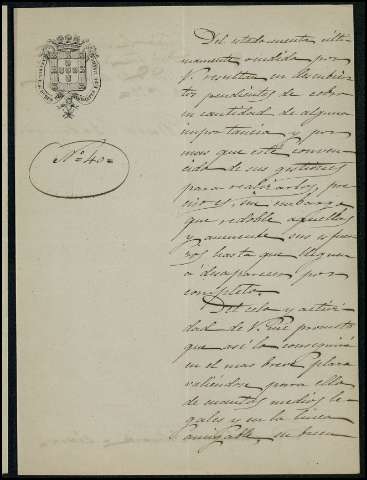 Nº 40=
Del estado cuenta últi-
mamente rendida por
V. resultan en descubier-
tos pendientes de cobro
en cantidad de alguna
importancia y por
mas que esté conven-
cido de sus gestiones
para realizarlos, pre-
ciso es, sin embargo
que redoble aquellas
y aumente sus esfuer-
zos hasta que lleguen
a desaparecer por
completo.
Del celo y activi-
dad de V. me prometo
que así lo conseguirá
en el mas breve plazo
valiéndose para ello
de cuantos medios le-
gales y en la línea
amigable, su buen